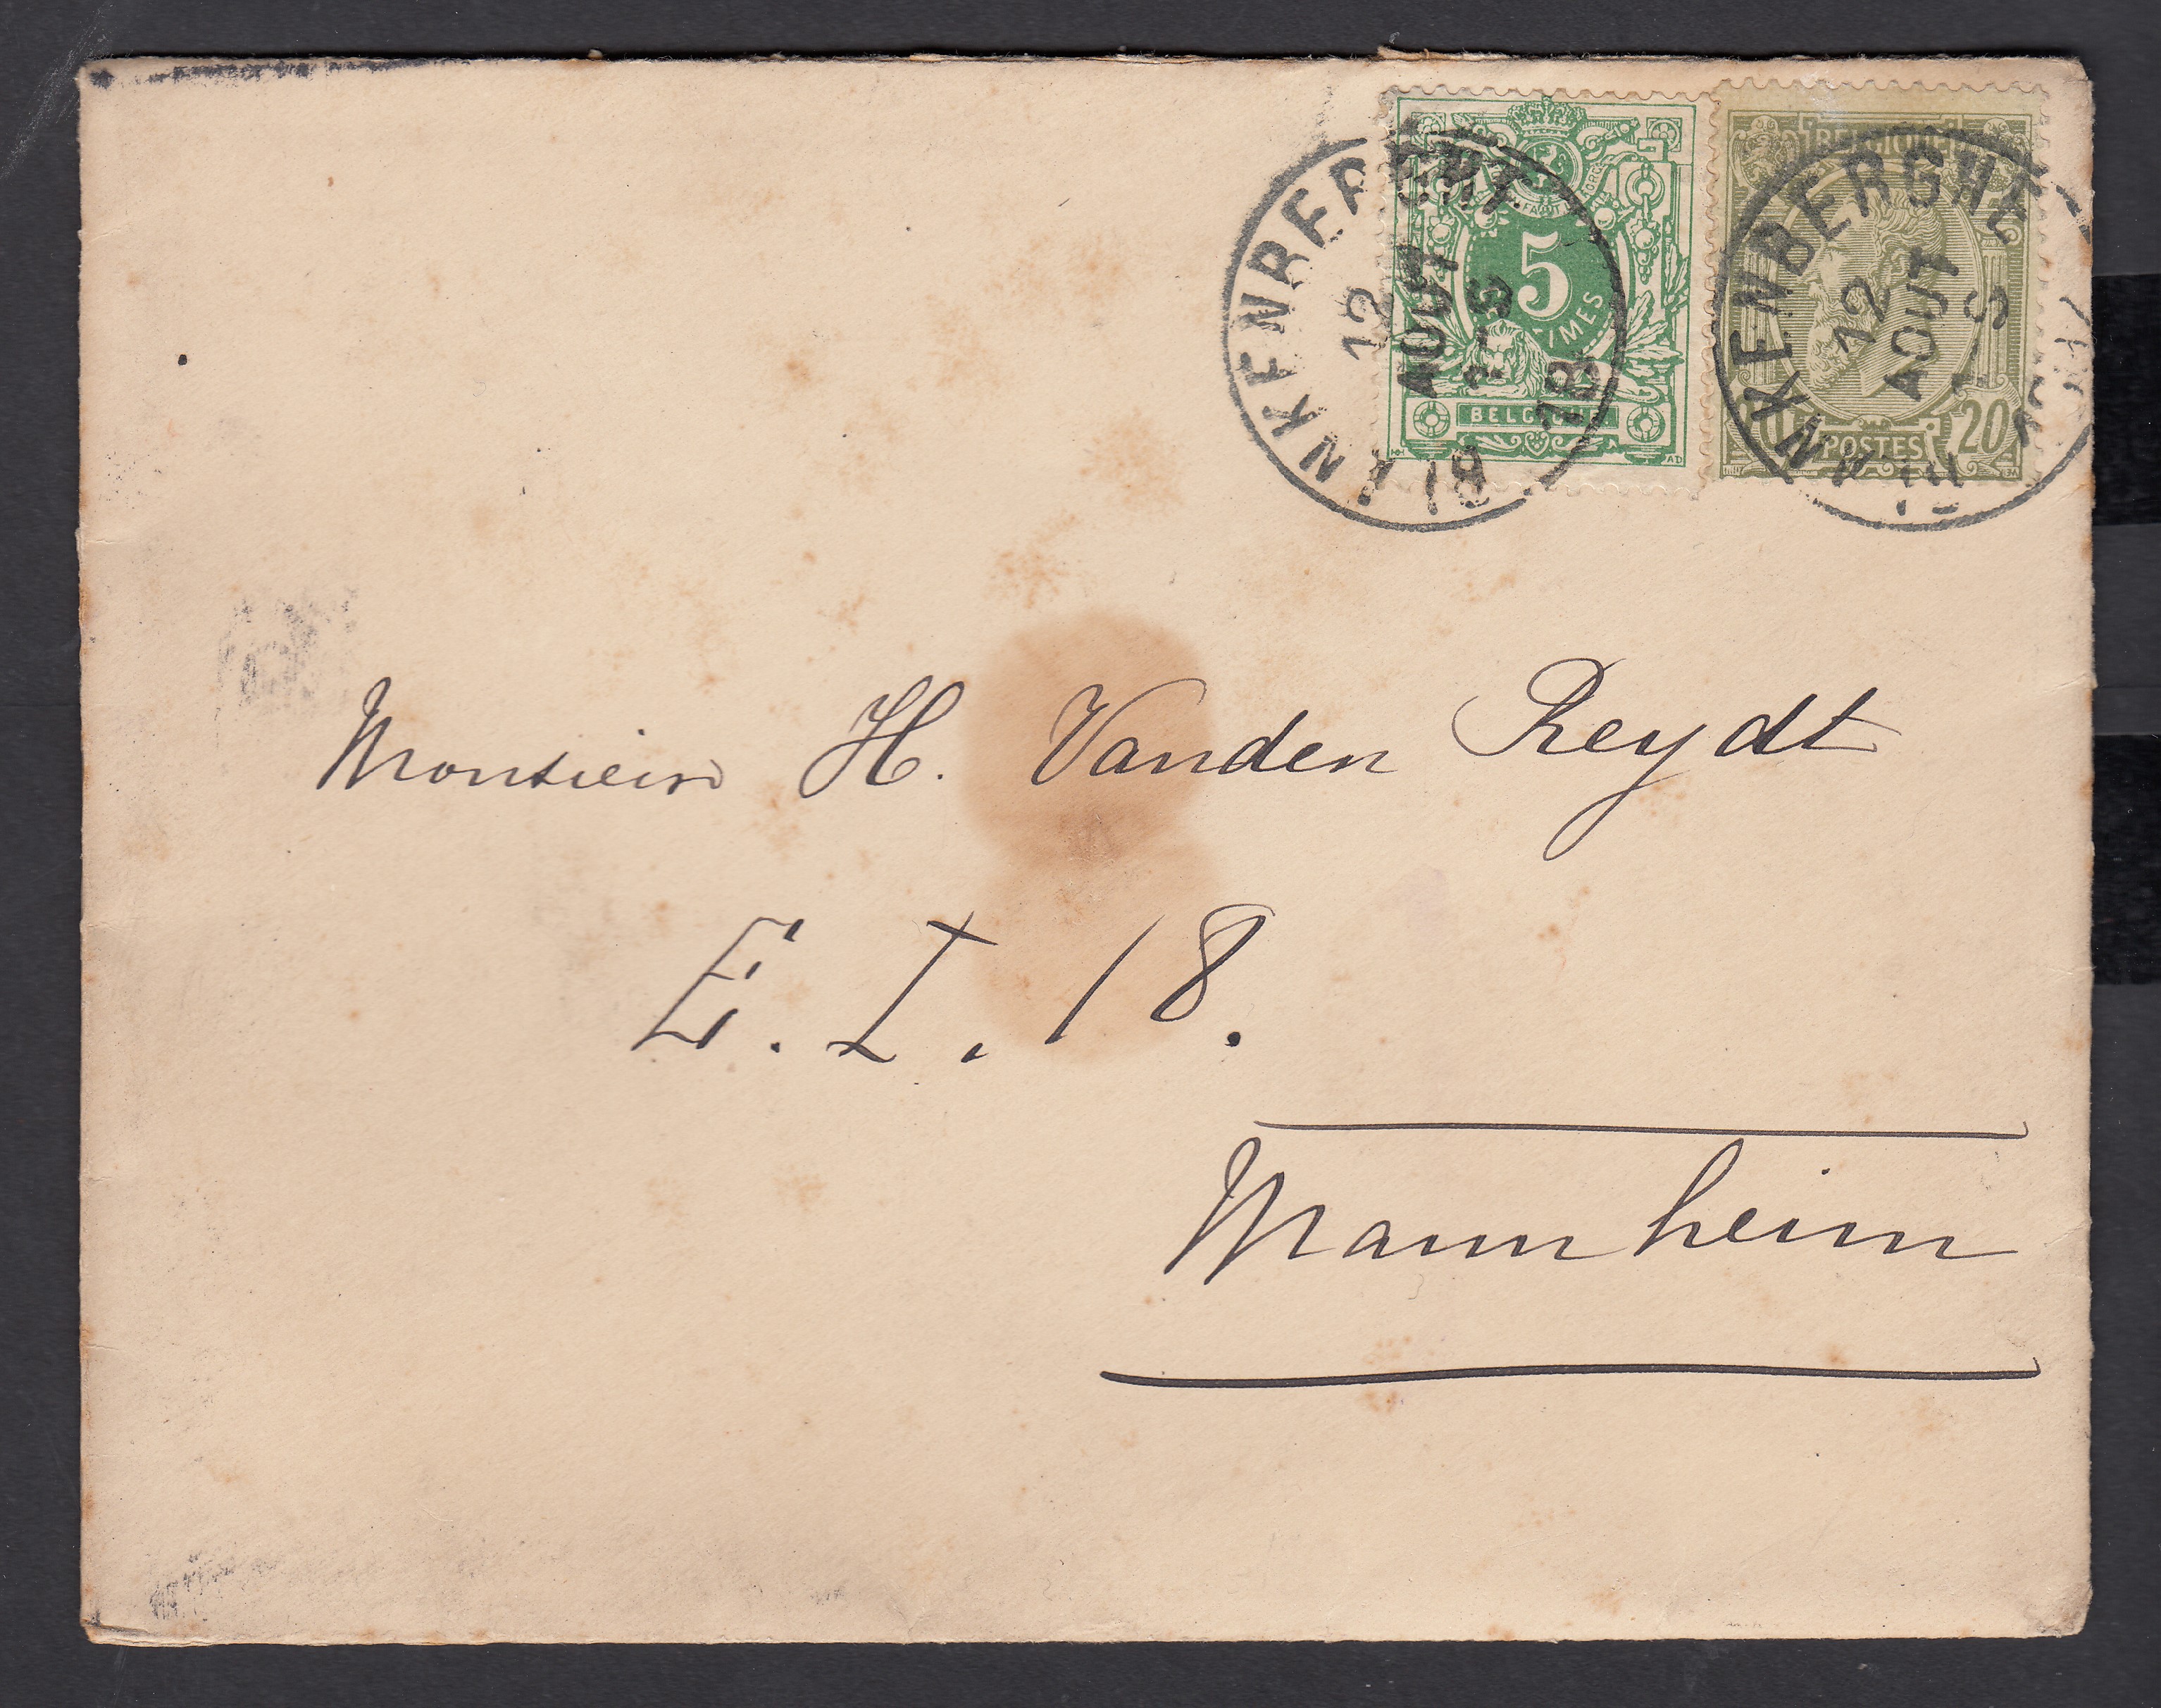 BLANKENBERGHE
12
AOUT
7-S
18
5
BELGIQUE
BELGIQUE
BLANKENBERGHE
12
AOUT
7-S
POSTES
20
Monsieur H. Vanden Reydt
E. I. 18.
Mannheim